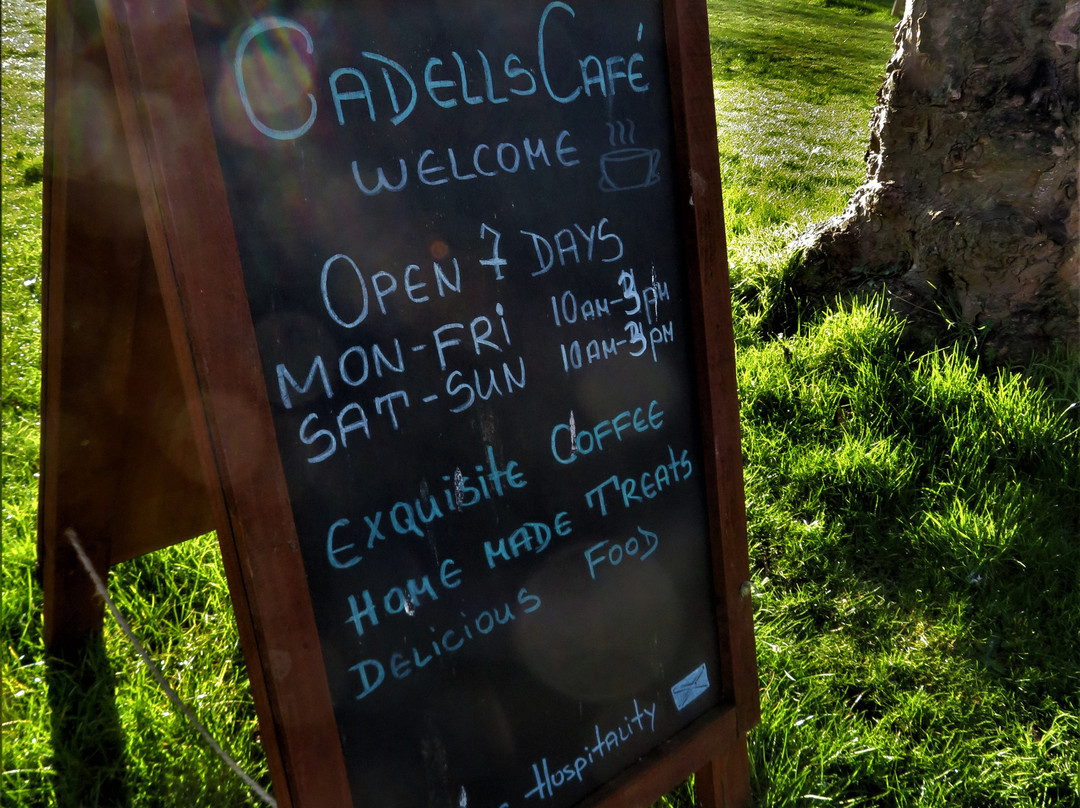 CADELLS CAFÉ
WELCOME
OPEN 7 DAYS
MON-FRI 10AM-3PM
SAT-SUN 10AM-3PM
EXQUISITE COFFEE
HOME MADE TREATS
DELICIOUS FOOD
HOSPITALITY